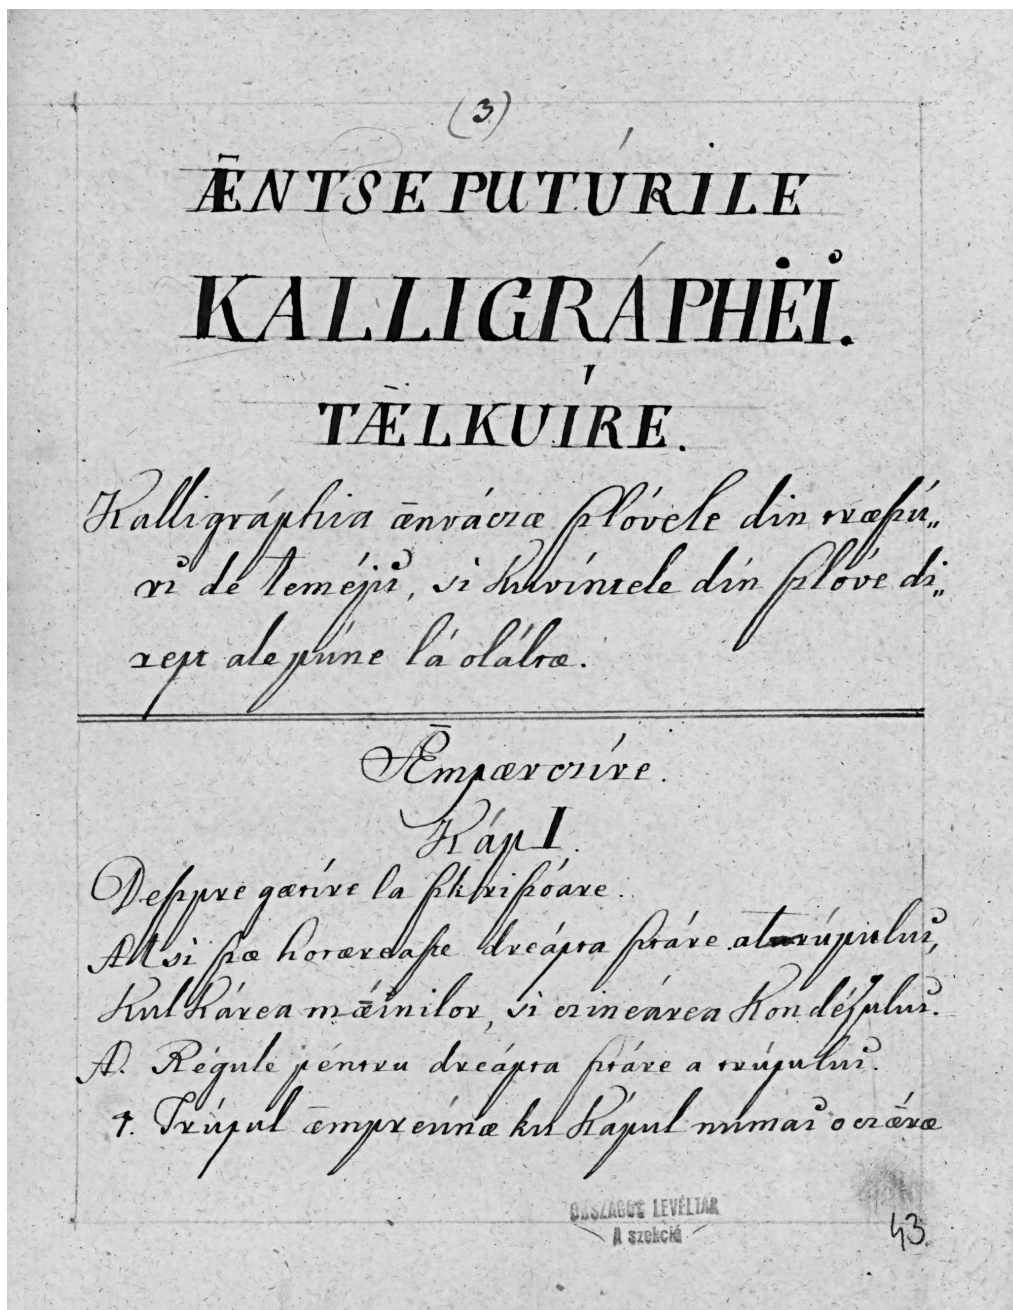 (3)
ǢNTSE PUTÚRILE
KALLIGRÁPHĖI̓.
TǢLKUÍRE.
Kalligráphia ǣnváczæ þlóvele din træþú„
ri̓ de teméju̓, si kuvíntele dín þlóve di„
rept ale púne lá oláltæ.
Ǣmpærczíre.
Káp I.
Deþpre gætíre la þkriþóare.
At si þæ hotæreaþe dreápta þtáre a trúpului̓,
Kulkárea mǣínilor, si czineárea Kondéjului̓.
A. Régule péntru dreápta þtáre a trúpului̓.
1. Trúpul ǣmpreúnæ ku Kápul numai̓ o czǣræ
ORSZÁGOS LEVÉLTÁR
A szekció
43.